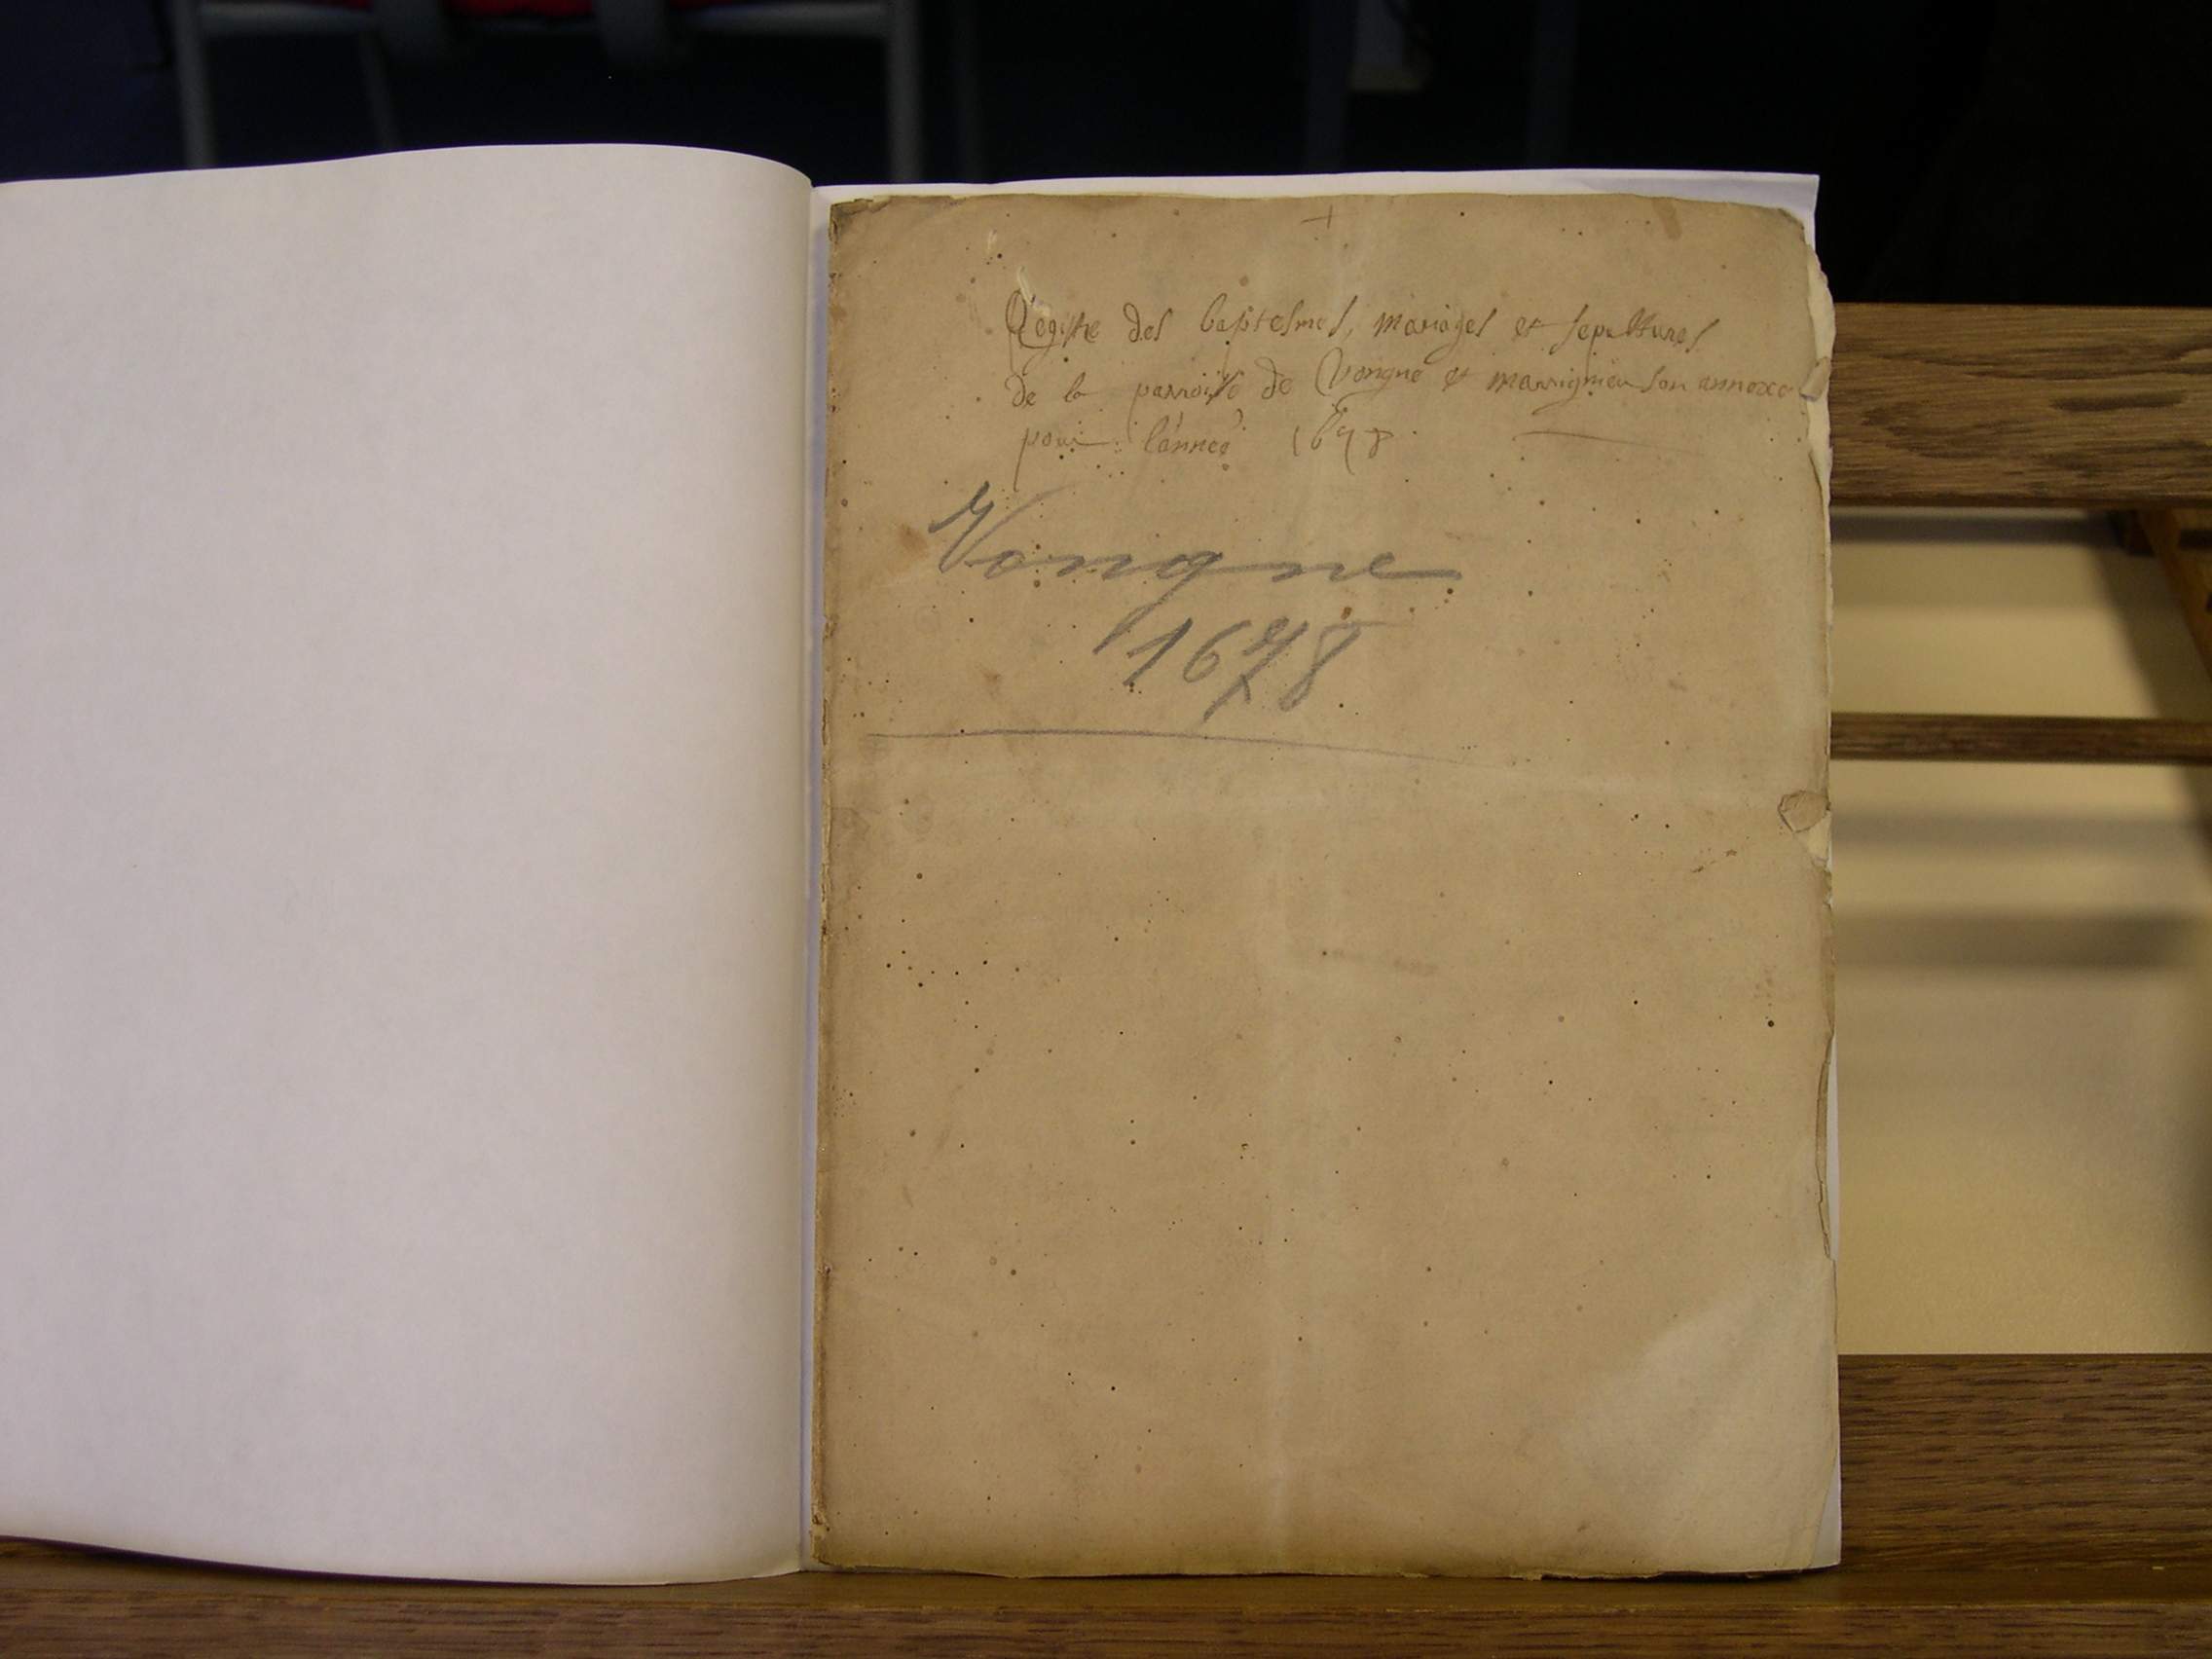 Registre des baptesmes, mariages et sepultures
de la parroisse de Vongne et marrignieu son annexe
pour l'année 1678
Vongne
1678